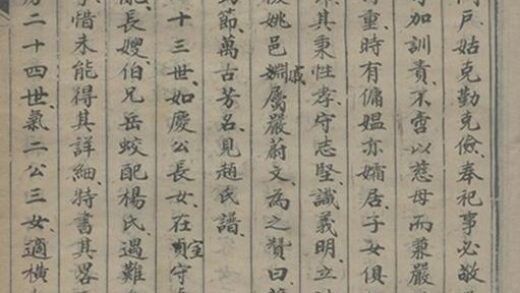 户姑克勤克儉奉祀事必敬
加訓責不啻以慈母而兼嚴
重時有傭媼亦孀居子女俱
其秉性孝守志堅識義明立
姚邑姻戚屬嚴蔚文為之贊曰
節萬古芳名見趙氏譜
十三世如慶公長女在室守
能長嫂伯兄岳蛟配楊氏遇難
惜未能得其詳細特書其畧
二十四世氣二公三女適橫